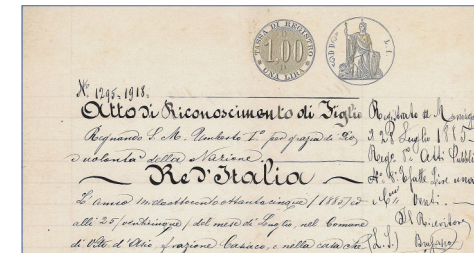 TASSA DI REGISTRO
D
1.00
D
UNA LIRA
L. I.
N.° 1295-1918.
Atto di Riconoscimento di Figlio
Regnando S. M. Umberto I° per grazia di Dio
e volontà della Nazione
Re d'Italia
L'anno milleottocentottantacinque /1885/ e
alli 25/ venticinque/ del mese di Luglio, nel Comune
di Vito d'Asio, frazione Casiaco, e nella casa che
Registrato a
Luglio 1885
Atti Pubbli
Lire una
Venti.
Il Ricevitore
(L. S.)